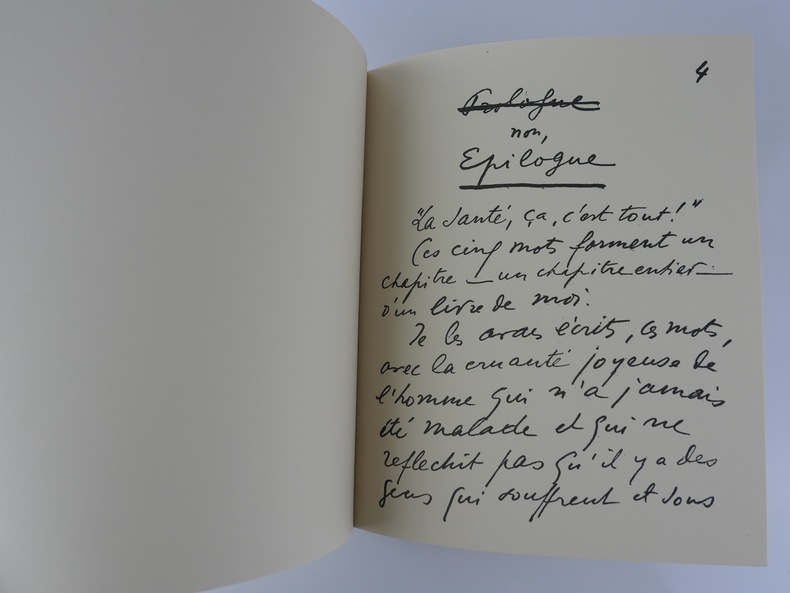 4
Prologue
non,
Epilogue
"La Santé, ça, c'est tout!"
Ces cinq mots forment un
chapitre — un chapitre entier —
d'un livre de moi.
Je les avais écrits, ces mots,
avec la cruauté joyeuse de
l'homme qui n'a jamais
été malade et qui ne
reflechit pas qu'il y a des
gens qui souffrent et dans